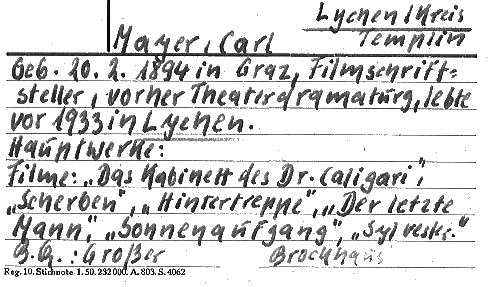 Lychen/Kreis
Templin
Mayer, Carl
Geb. 20. 2. 1894 in Graz, Filmschrift=
steller, vorher Theaterdramaturg, lebte
vor 1933 in Lychen.
Hauptwerke:
Filme: „Das Kabinett des Dr. Caligari",
„Scherben", „Hintertreppe", „Der letzte
Mann", „Sonnenaufgang", „Sylvester."
B.Q.: Großer Brockhaus
Reg. 10. Stichnote 1. 50. 232 000. A. 803. S. 4062